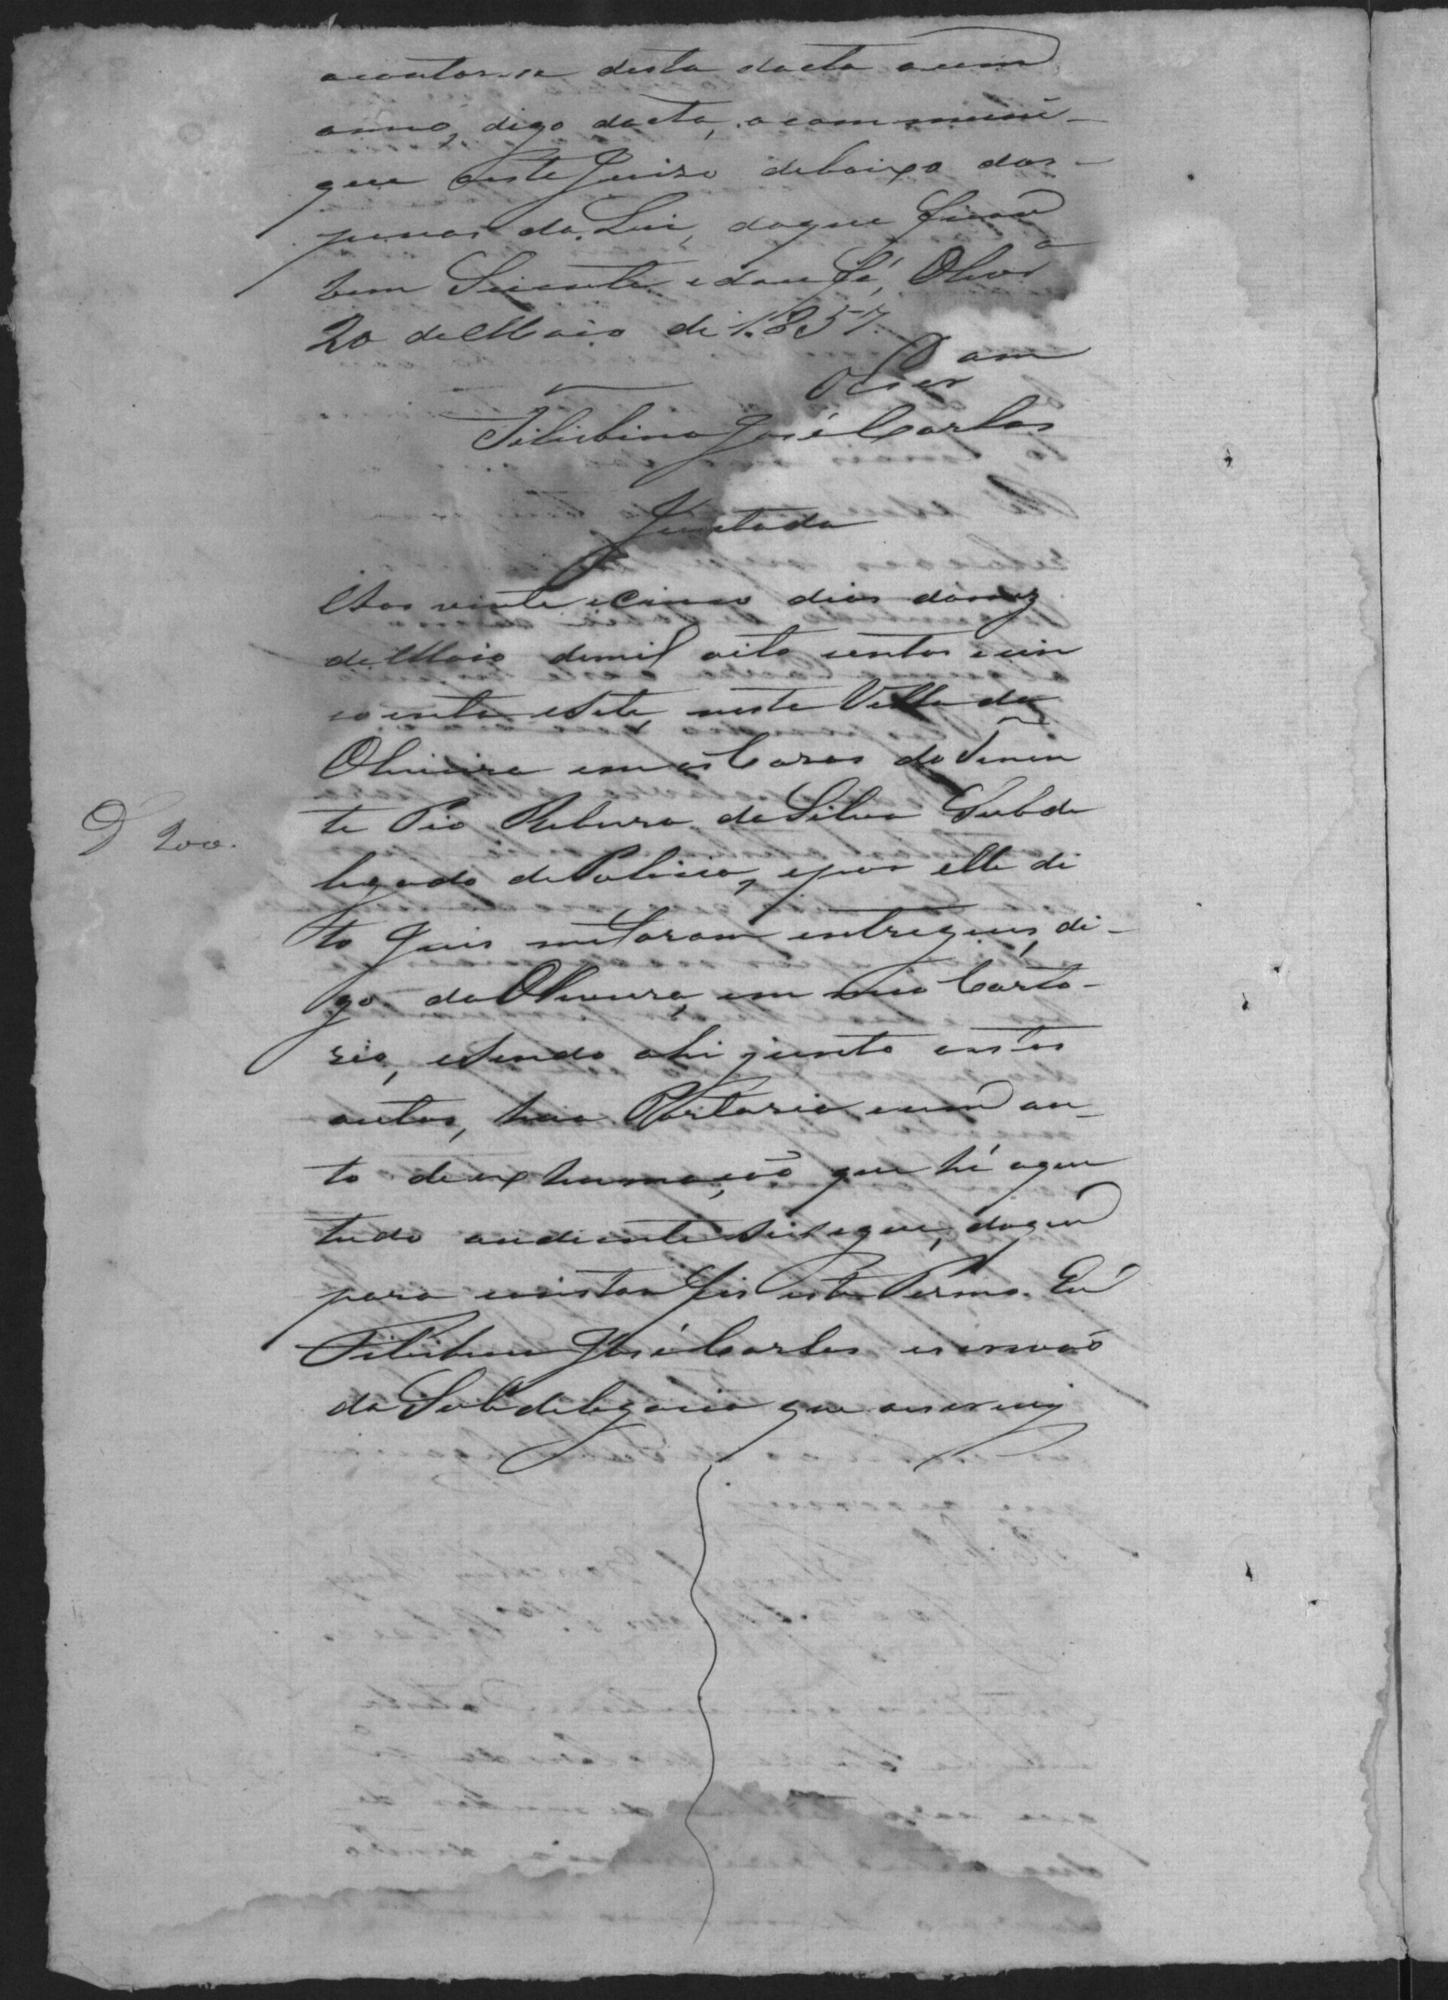 acontar-se desta dacta a um
anno, digo dacta, a communi-
que a este Juizo debaixo das
penas da Lei, do que ficou
bem Sciente e dou fé, Olivr.ª
20 de Maio de 1857.
O Escr.am
Felisbino José Carlos
Juntada
Aos vinte e cinco dias do mez
de Maio de mil oito centos e cin
coenta e Sete, nesta Villa da
Oliveira em as Casas do Tenen
te Pio Ribeiro da Silva Subde
legado de Policia, e por elle di
to Juis me foram entregues, di-
go da Oliveira, em meo Carto-
rio, e Sendo ahi junto a estes
autos, hua Portaria e um au-
to de exhumação que hé o que
tudo a diante Se Segue, do que
para constar fis este Termo. Eu
Felisbino José Carlos escrivão
da Subdelegacia que o escrevy
D 200.